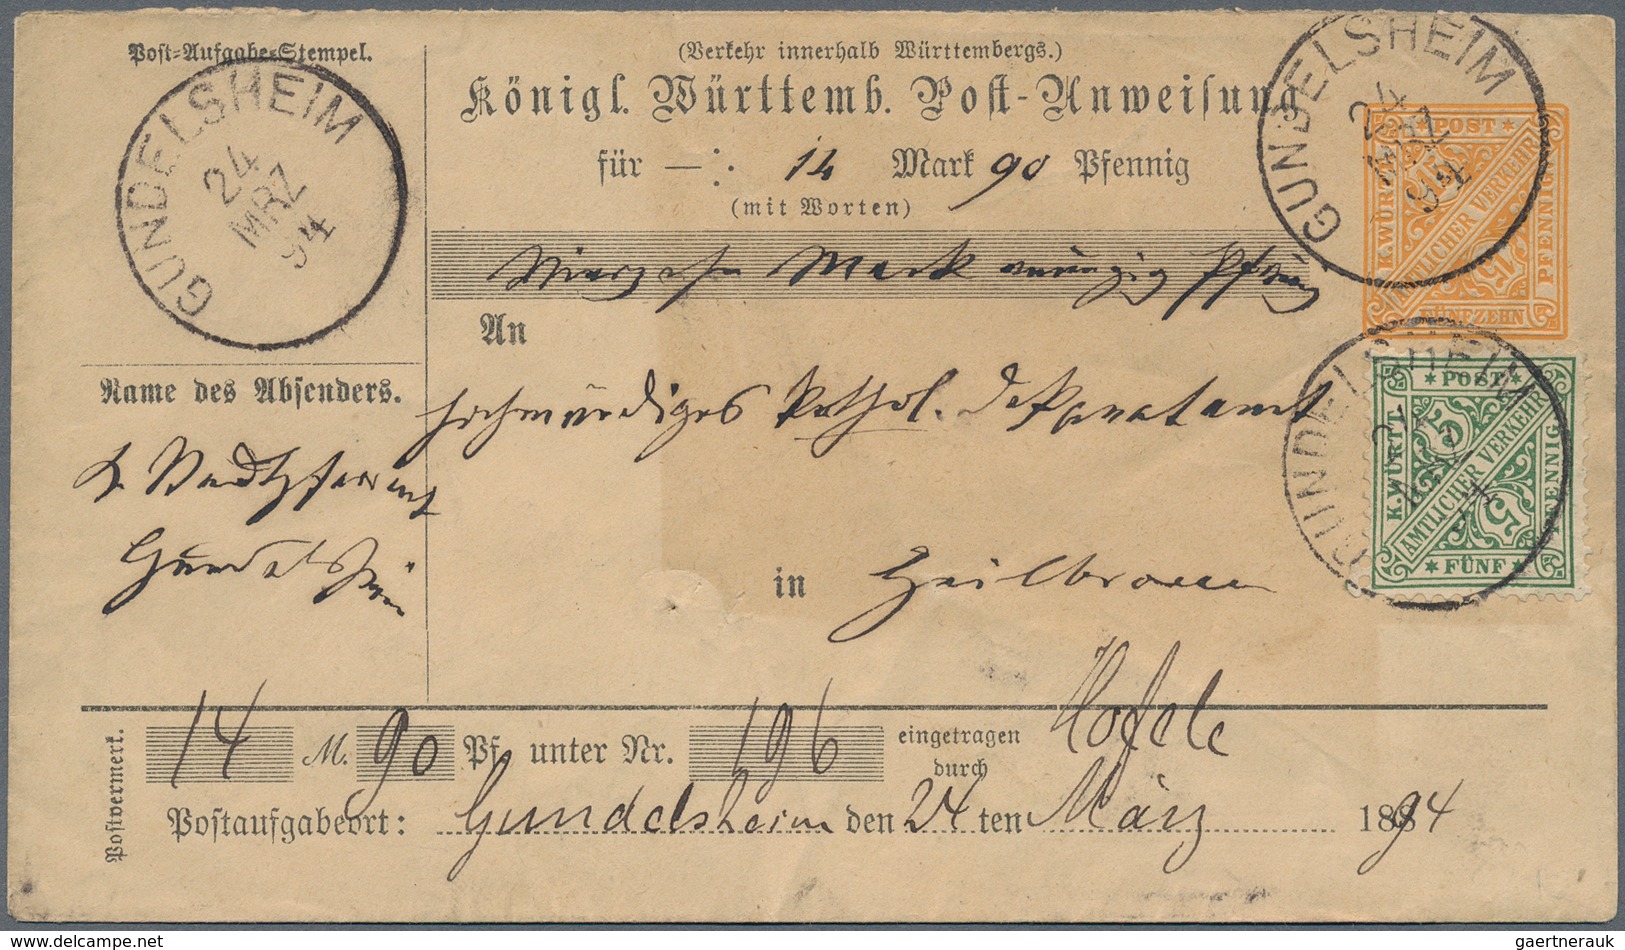 Post-Aufgabe-Stempel.
GUNDELSHEIM
24
MRZ
94
(Verkehr innerhalb Württembergs.)
Königl. Württemb. Post-Anweisung
für —: 14 Mark 90 Pfennig
(mit Worten)
Vierzehn Mark neunzig Pfennig
GUNDELSHEIM
24
MRZ
94
POST
K.WÜRTT.
AMTLICHER VERKEHR
PFENNIG
15
15
FÜNFZEHN
GUNDELSHEIM
24
MRZ
94
POST
K.WÜRTT.
5
AMTLICHER VERKEHR
5
PFENNIG
FÜNF
An
hochwürdiges Kathol. Dekanatamt
in Heilbronn
Name des Absenders.
K. Stadtpfarramt
Gundelsheim
Postvermerk.
14 M. 90 Pf. unter Nr. 196 eingetragen durch Hofele
Postaufgabeort: Gundelsheim den 24 ten März 1894
gaertnerauk
delcampe.net